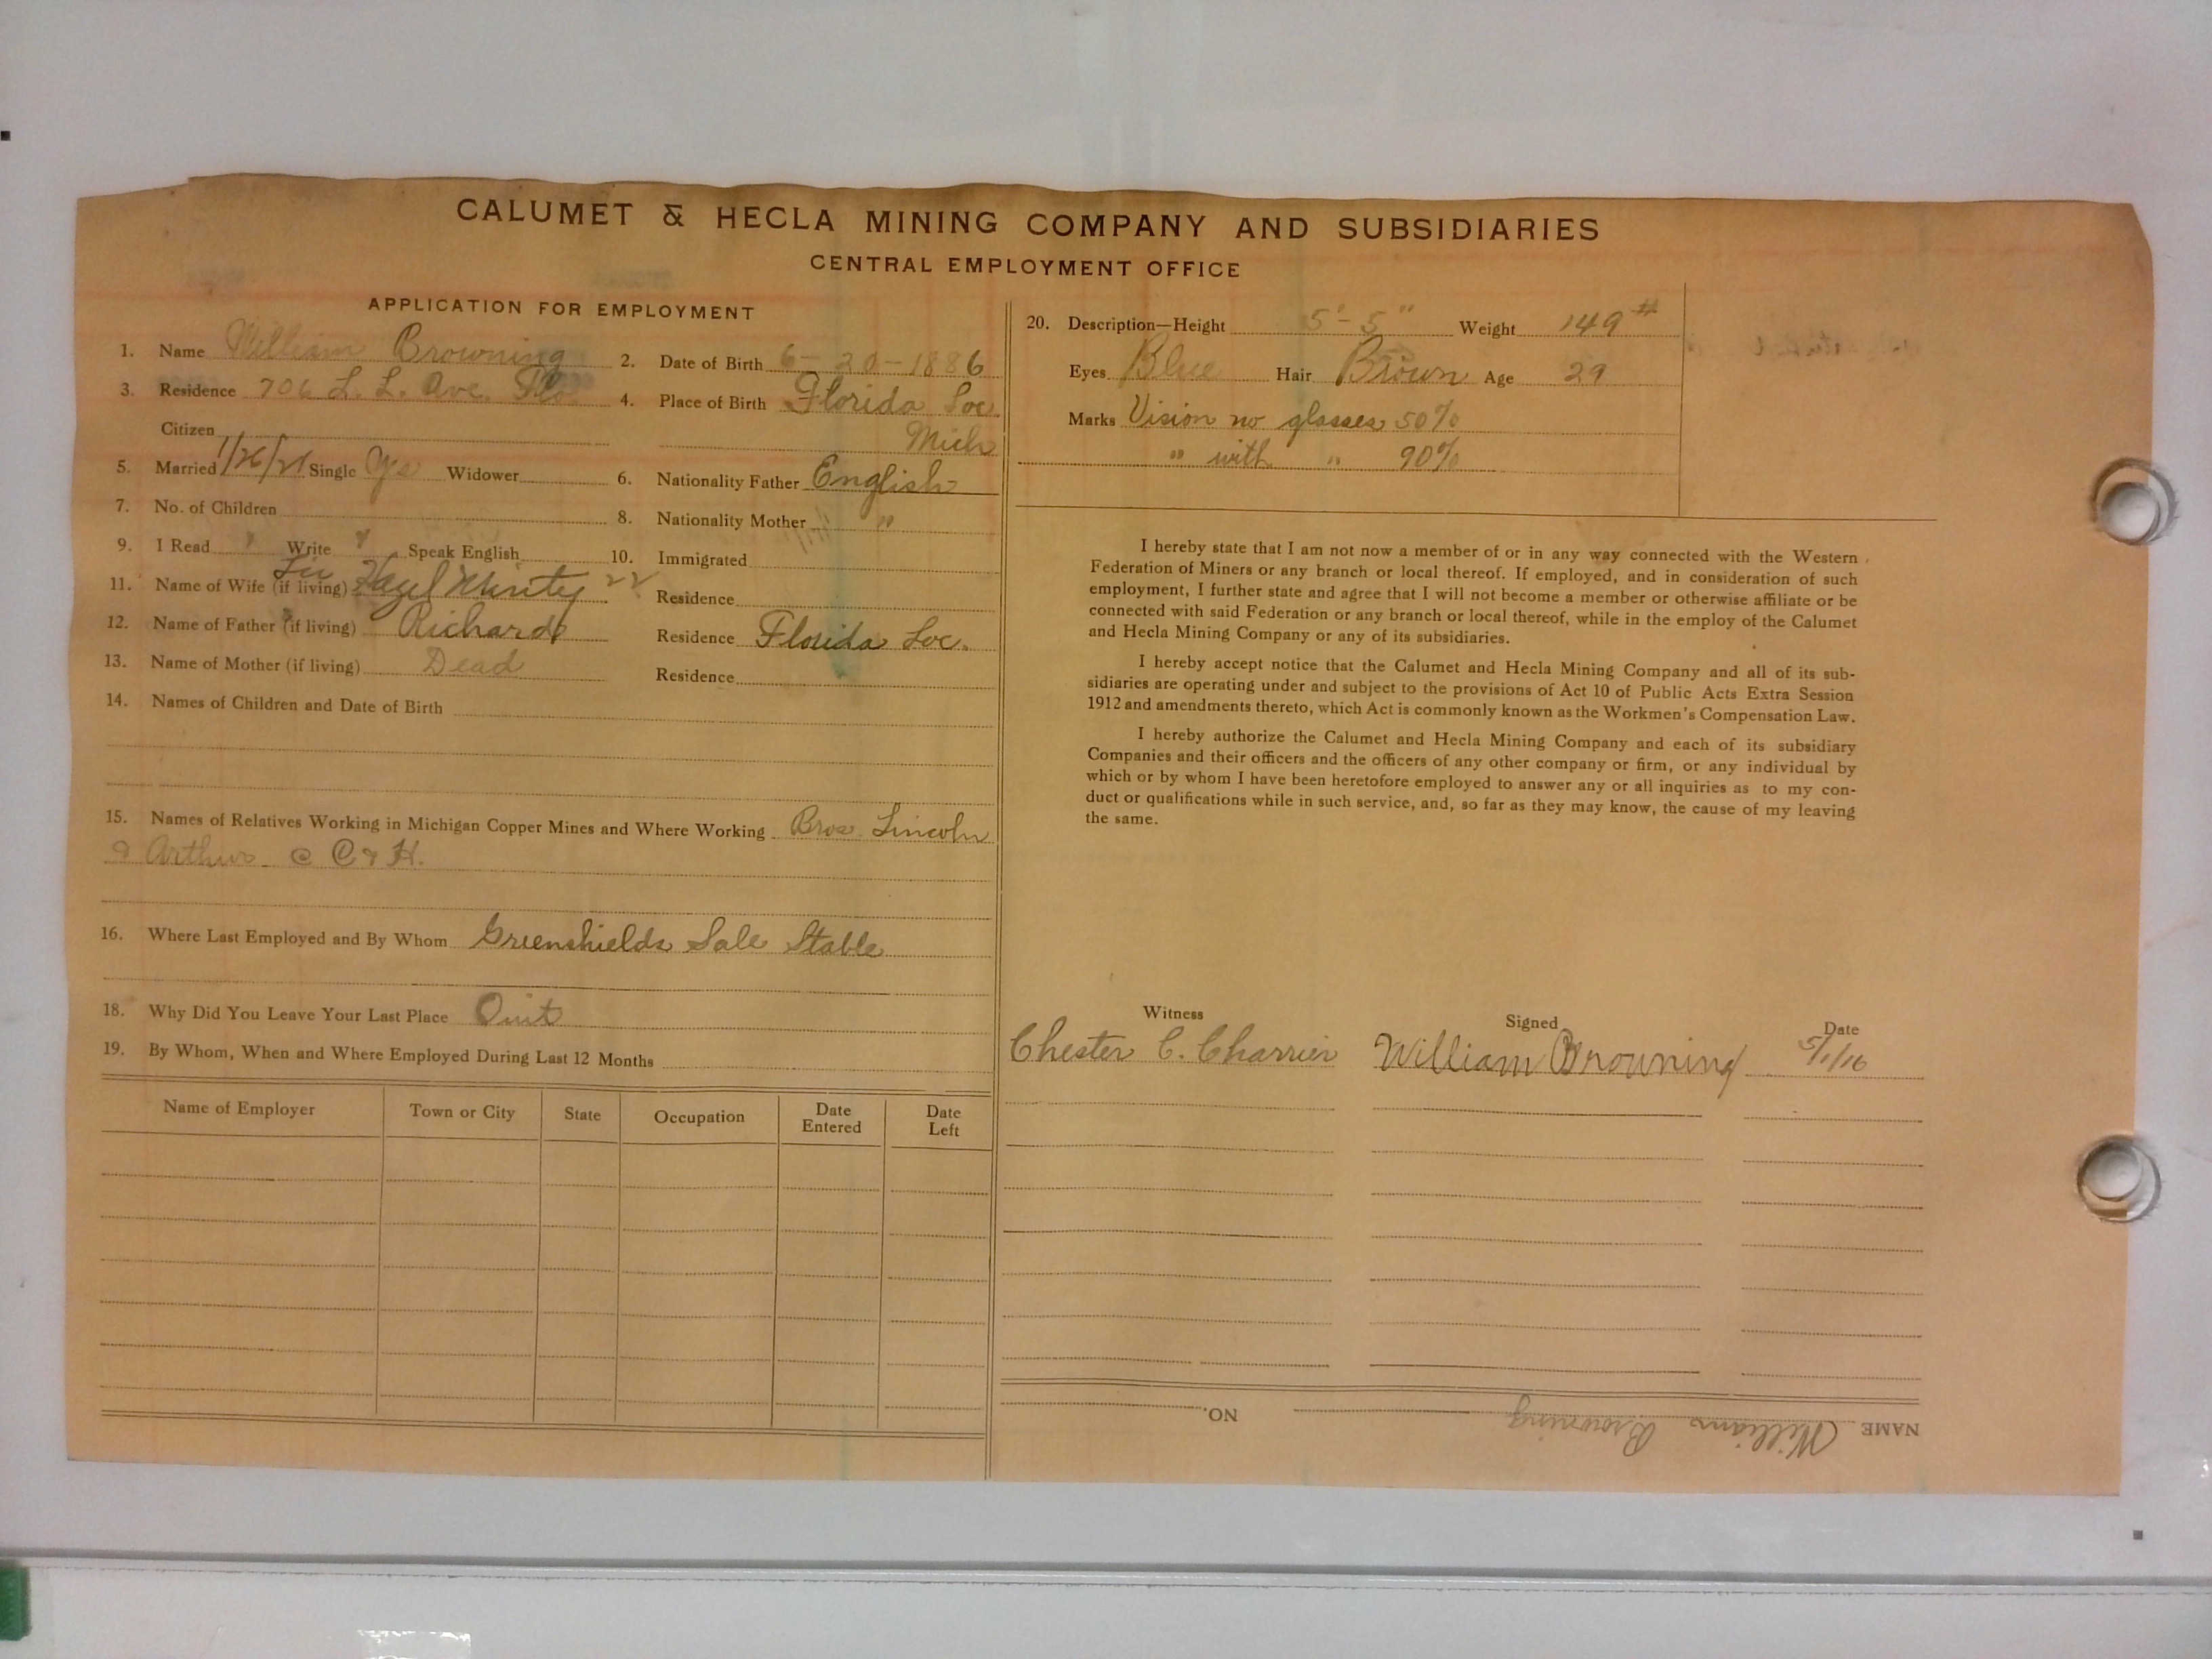 CALUMET & HECLA MINING COMPANY AND SUBSIDIARIES
CENTRAL EMPLOYMENT OFFICE
APPLICATION FOR EMPLOYMENT
1. Name William Browning 2. Date of Birth 6-20-1886
3. Residence 706 L. L. Ave. Flo 4. Place of Birth Florida Loc
Citizen Mich
5. Married 1/26/21 Single Yes Widower 6. Nationality Father English
7. No. of Children 8. Nationality Mother "
9. I Read Write Speak English 10. Immigrated
11. Name of Wife (if living) Hazel 22 Residence
12. Name of Father (if living) Richard Residence Florida Loc.
13. Name of Mother (if living) Dead Residence
14. Names of Children and Date of Birth
15. Names of Relatives Working in Michigan Copper Mines and Where Working Bros. Lincoln
& Arthur @ C & H.
16. Where Last Employed and By Whom Greenshields Sale Stable
18. Why Did You Leave Your Last Place Quit
19. By Whom, When and Where Employed During Last 12 Months
Name of Employer Town or City State Occupation Date Entered Date Left
20. Description—Height 5'-5" Weight 149#
Eyes Blue Hair Brown Age 29
Marks Vision no glasses 50%
" with " 90%
I hereby state that I am not now a member of or in any way connected with the Western
Federation of Miners or any branch or local thereof. If employed, and in consideration of such
employment, I further state and agree that I will not become a member or otherwise affiliate or be
connected with said Federation or any branch or local thereof, while in the employ of the Calumet
and Hecla Mining Company or any of its subsidiaries.
I hereby accept notice that the Calumet and Hecla Mining Company and all of its sub-
sidiaries are operating under and subject to the provisions of Act 10 of Public Acts Extra Session
1912 and amendments thereto, which Act is commonly known as the Workmen's Compensation Law.
I hereby authorize the Calumet and Hecla Mining Company and each of its subsidiary
Companies and their officers and the officers of any other company or firm, or any individual by
which or by whom I have been heretofore employed to answer any or all inquiries as to my con-
duct or qualifications while in such service, and, so far as they may know, the cause of my leaving
the same.
Witness Signed Date
Chester C. Charrier William Browning 5/1/16
NAME William Browning NO.